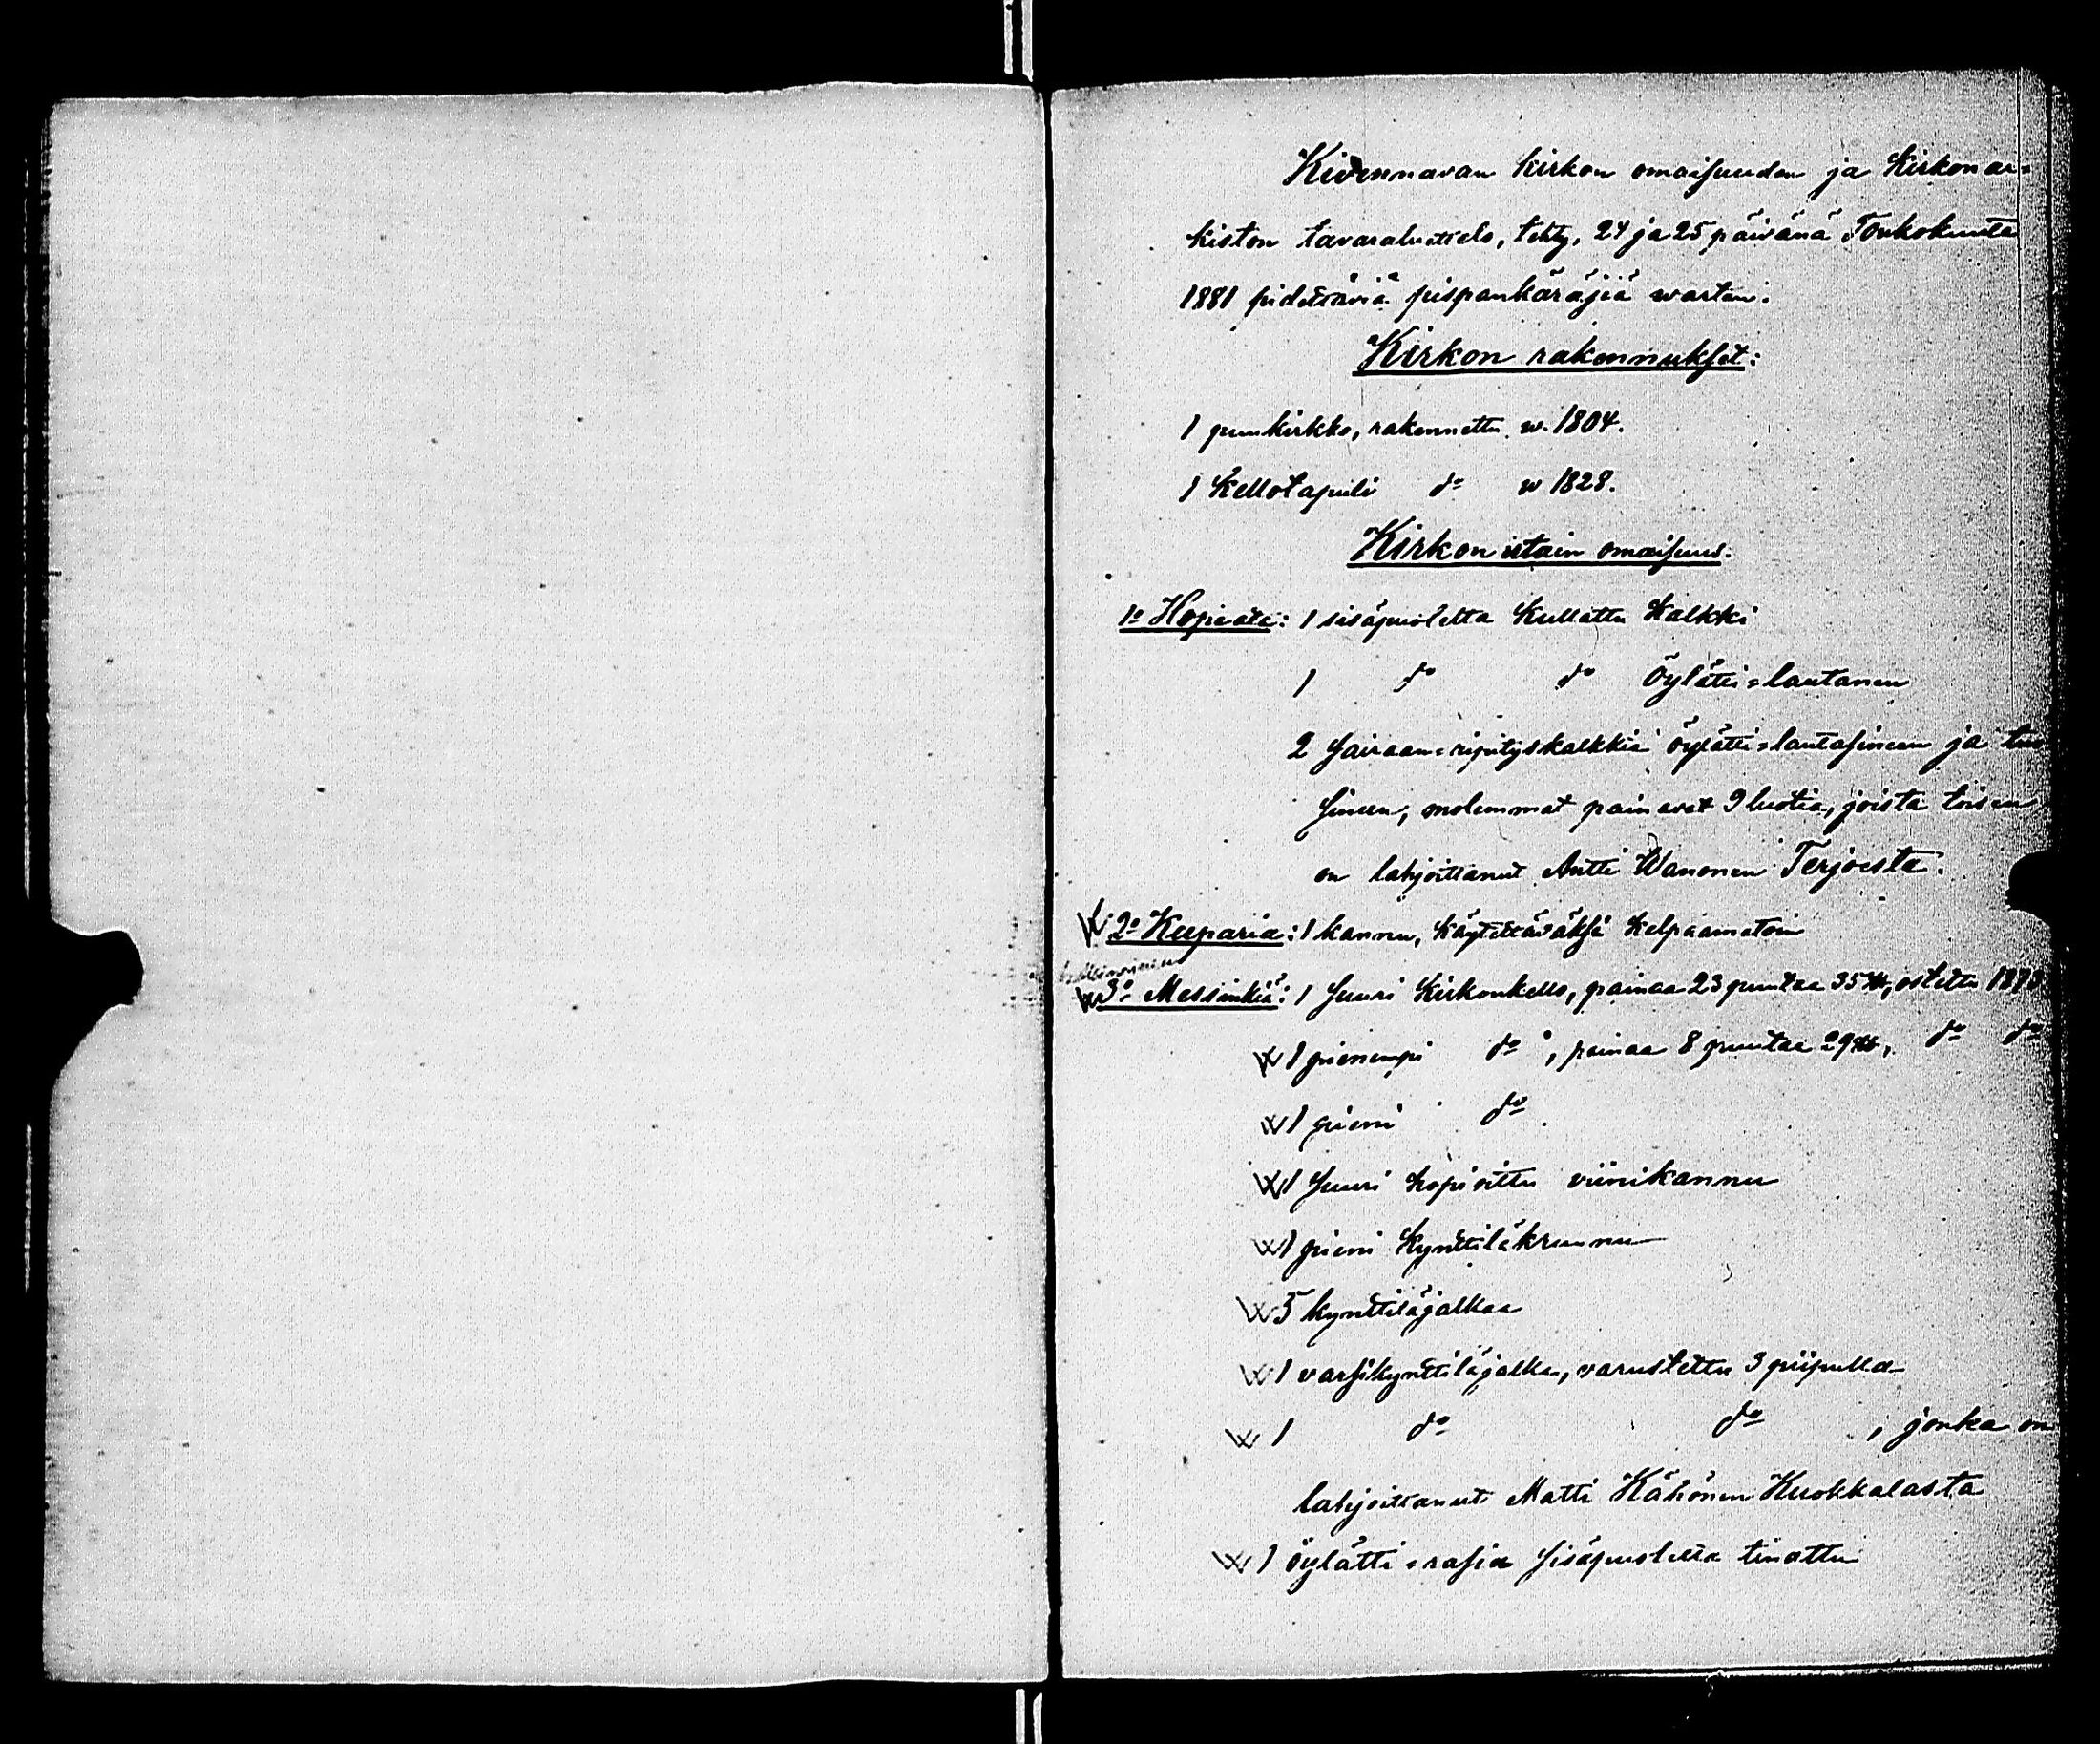 Kivennavan kirkon omaisuuden ja kirkonar=
kiston tavaraluettelo, tehty, 24 ja 25 päivänä Toukokuuta
1881 pidettäviä pispankäräjiä warten.
Kirkon rakennukset:
1 puukirkko, rakennettu w. 1804.
1 kellotapuli do w 1828.
Kirkon irtain omaisuus.
1o Hopiata: 1 sisäpuolelta kullattu kalkki
1 do do Öylätti=lautanen
2 sairaan=ripityskalkkia öylätti=lautasineen ja
sineen, molemmat painavat 9 luotia, joista toisen
on lahjoittanut Antti Wanonen Terjoesta.
W 2o Kuparia: 1 kannu, käytettäväksi kelpaamatoin
W 3o Messinkiä: 1 suuri kirkonkello, painaa 23 puutaa 35 ℔, ostettu
W 1 pienempi do, painaa 8 puutaa 29 ℔, do do
W 1 pieni do
W 1 suuri hopioittu viinikannu
W 1 pieni kynttiläkruunu
W 5 kynttiläjalkaa
W 1 varsikynttiläjalka, varustettu 3 piipulla
W 1 do do, jonka on
lahjoittanut Matti Kähönen Kuokkalasta
W 1 öylätti=rasia sisäpuolelta tinattu